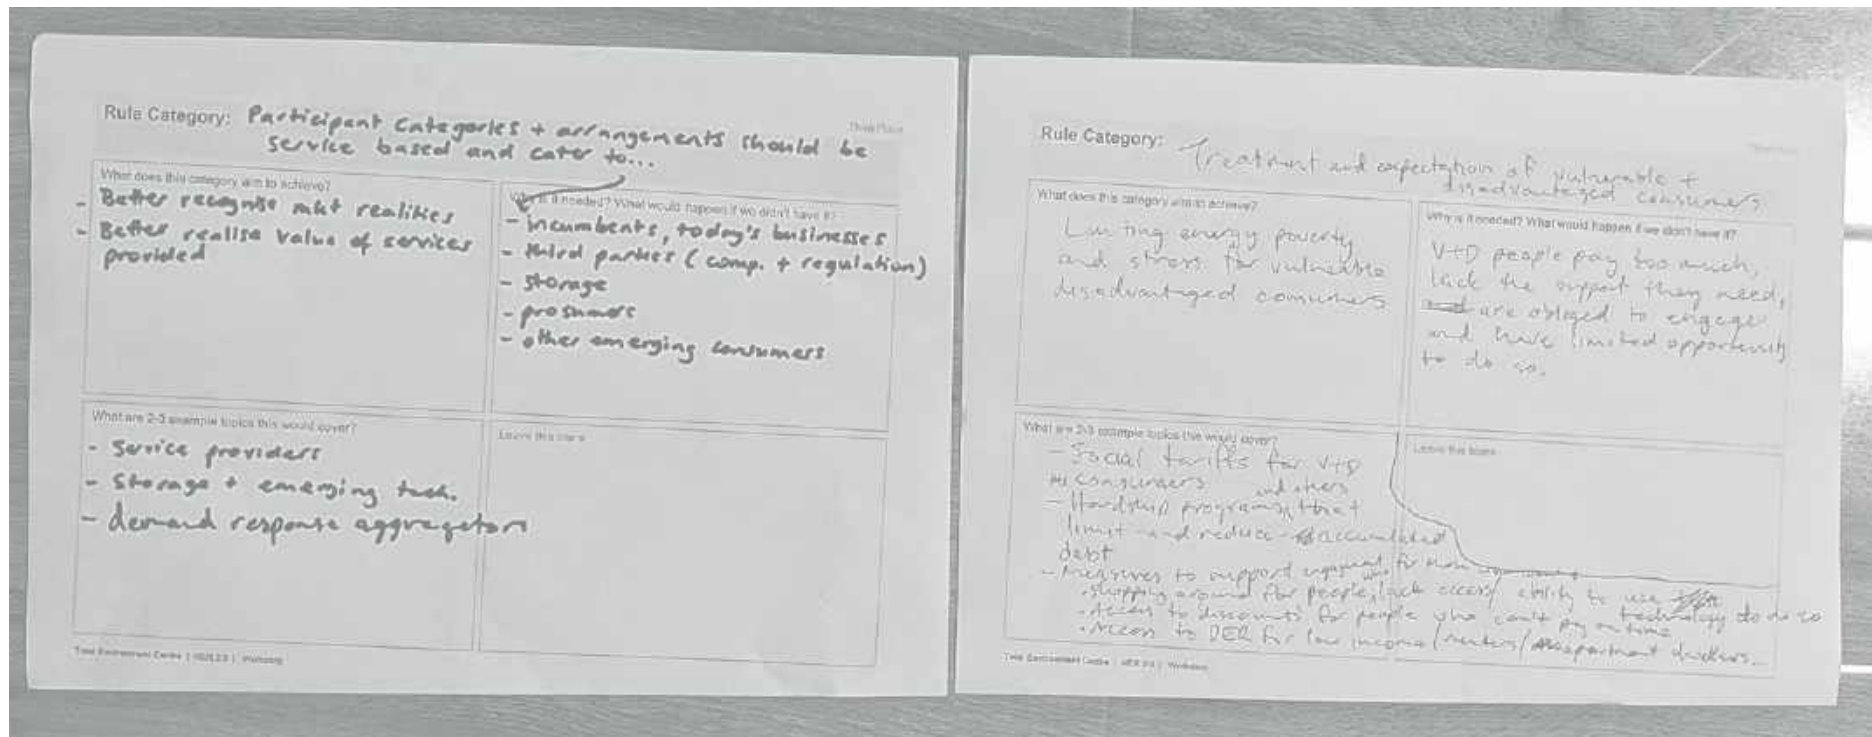 Rule Category: Participant Categories + arrangements should be
service based and cater to...
ThinkPlace
What does this category aim to achieve?
- Better recognise mkt realities
- Better realise value of services
provided
Why is it needed? What would happen if we didn't have it?
- incumbents, today's businesses
- third parties (comp. + regulation)
- storage
- prosumers
- other emerging consumers
What are 2-3 example topics this would cover?
- Service providers
- Storage + emerging tech.
- demand response aggregators
Leave this blank
Total Environment Centre | Workshop
Rule Category: Treatment and expectation of vulnerable +
disadvantaged consumers
What does this category aim to achieve?
Limiting energy poverty
and stress for vulnerable
disadvantaged consumers
Why is it needed? What would happen if we didn't have it?
V+D people pay too much,
lack the support they need,
are obliged to engage
and have limited opportunity
to do so.
What are 2-3 example topics this would cover?
- Social tariffs for V+D
consumers and others
- Hardship programs that
limit and reduce accumulated
debt
- Measures to support for
- shopping around for people who lack access/ability to use technology to do so
- Access to discounts for people who can't pay on time
- Access to DER for low income/renters/apartment dwellers
Leave this blank
Total Environment Centre | Workshop